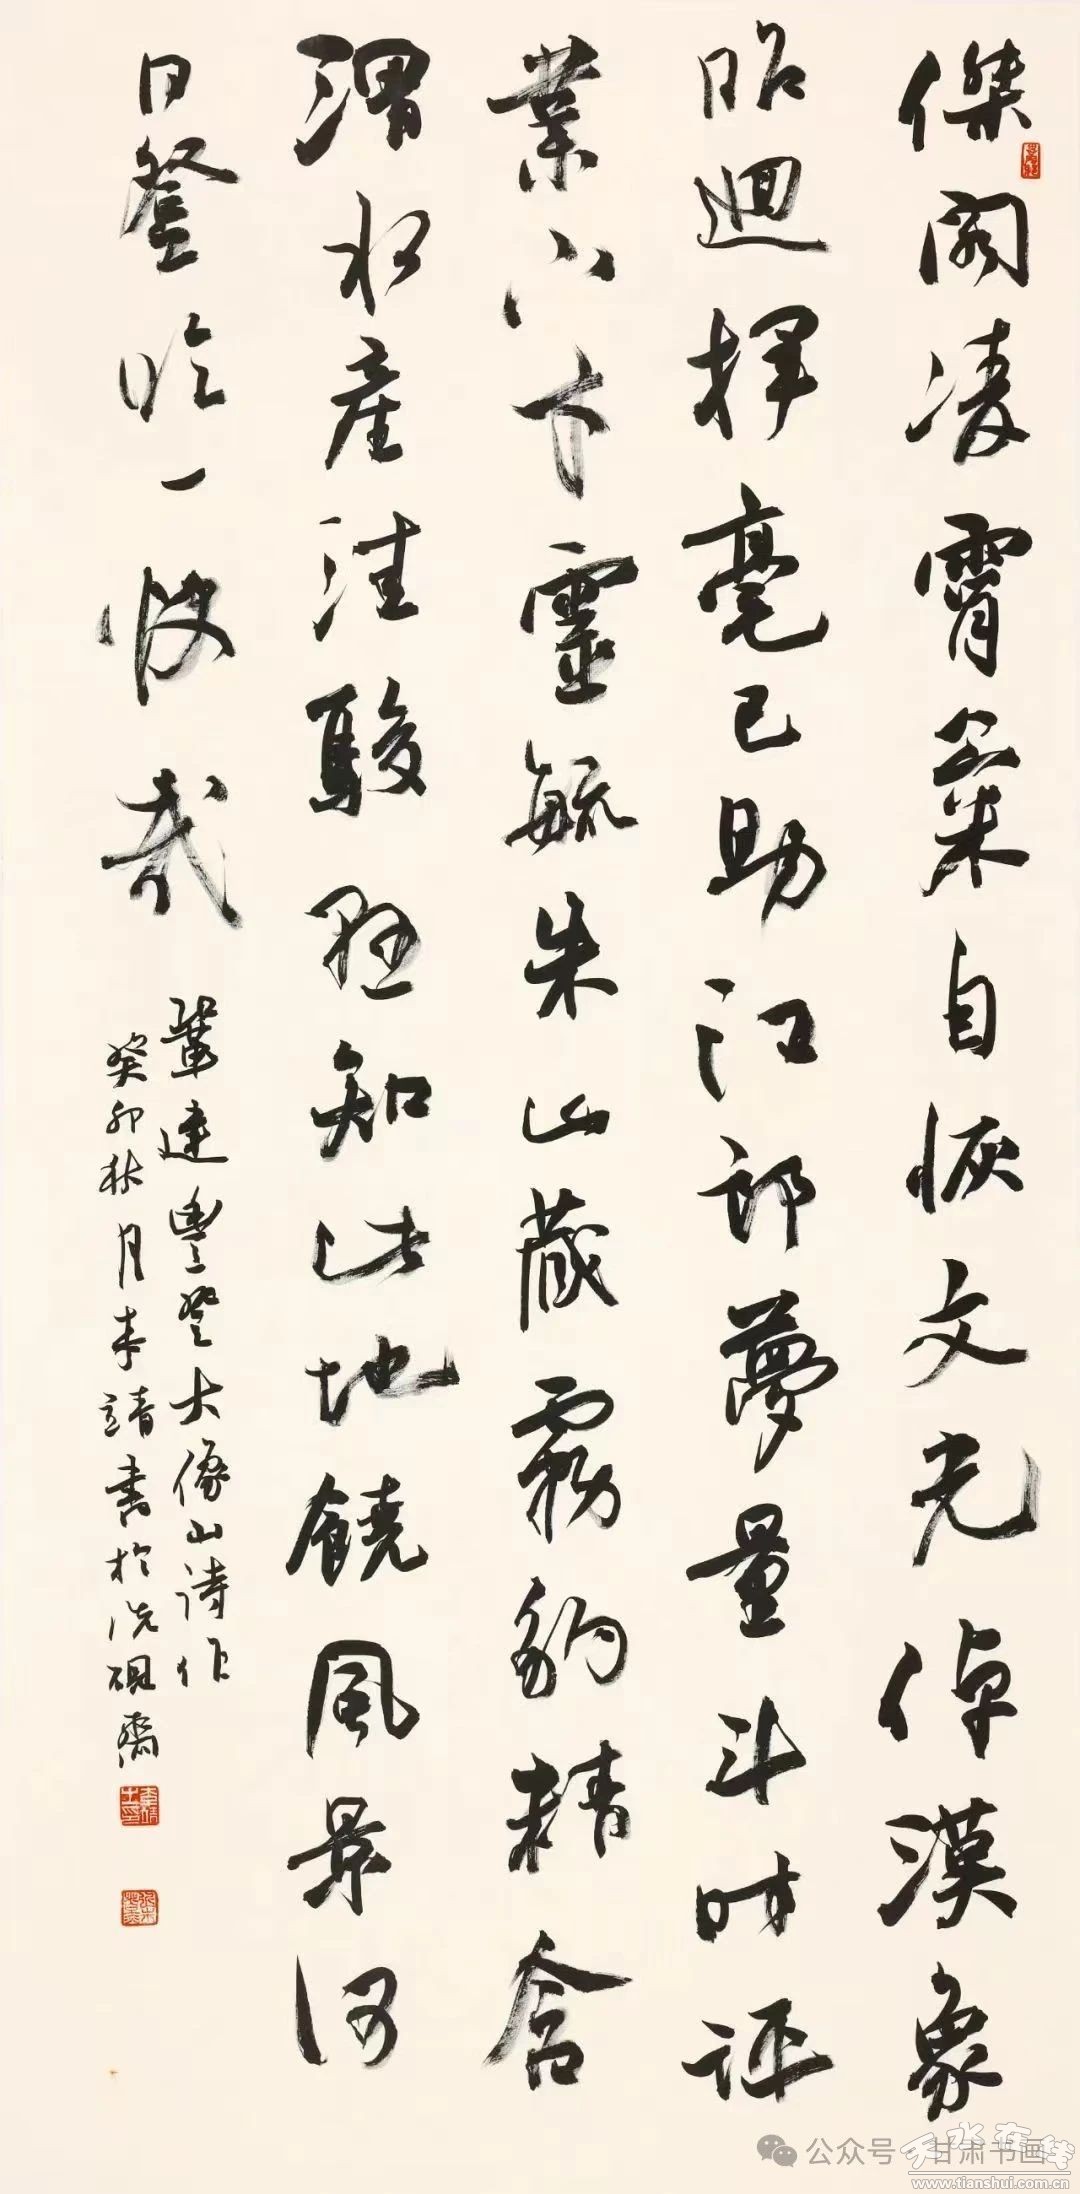 傑閣凌霄氣自恢文光倬漢象
昭迴揮毫已助江郎夢量斗時評
業下才靈毓朱山藏霧豹精含
渭水產洼駿懸知此地饒風景何
日登臨一快哉
鞏建豐登大像山詩作
癸卯秋月李靖書於洗硯齋
公众号·甘肃书画
天水在线
www.tianshui.com.cn